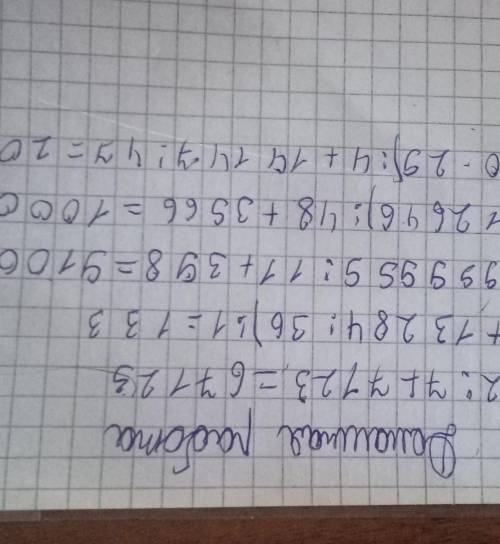 Домашняя работа
2:7+7723=67123
+13284:36):1=1333
99995:11+398=9100
12646):48+3566=1000
0-29):4+14147:47=20